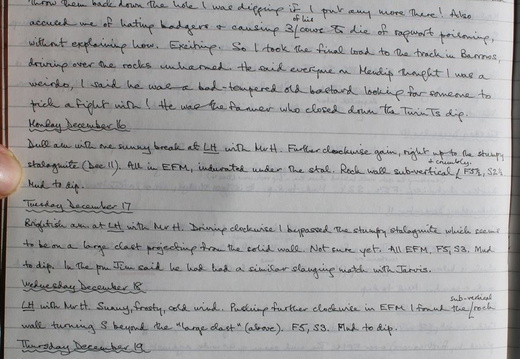 throw them back down the hole I was digging if I put any more there! Also
accused me of hating badgers & causing 3 of his cows to die of ragwort poisoning,
without explaining how. Exciting. So I took the final load to the track in Barrows,
driving over the rocks unharmed. He said everyone on Mendip thought I was a
weirdo, I said he was a bad-tempered old bastard looking for someone to
pick a fight with! He was the farmer who closed down the Twin Ts dig.
Monday December 16
Dull am with one sunny break at LH with Mr H. Further clockwise gain, right up to the stumpy
stalagmite (Dec 11). All in EFM, indurated under the stal. Rock wall sub-vertical & crumbly. F5, S2.
Mud to dip.
Tuesday December 17
Brightish am at LH with Mr H. Driving clockwise I bypassed the stumpy stalagmite which seems
to be on a large clast projecting from the solid wall. Not sure yet. All EFM. F5, S3. Mud
to dip. In the pm Jim said he had had a similar slanging match with Jarvis.
Wednesday December 18
LH with Mr H. Sunny, frosty, cold wind. Pushing further clockwise in EFM I found the sub-vertical rock
wall turning S beyond the "large clast" (above). F5, S3. Mud to dip.
Thursday December 19